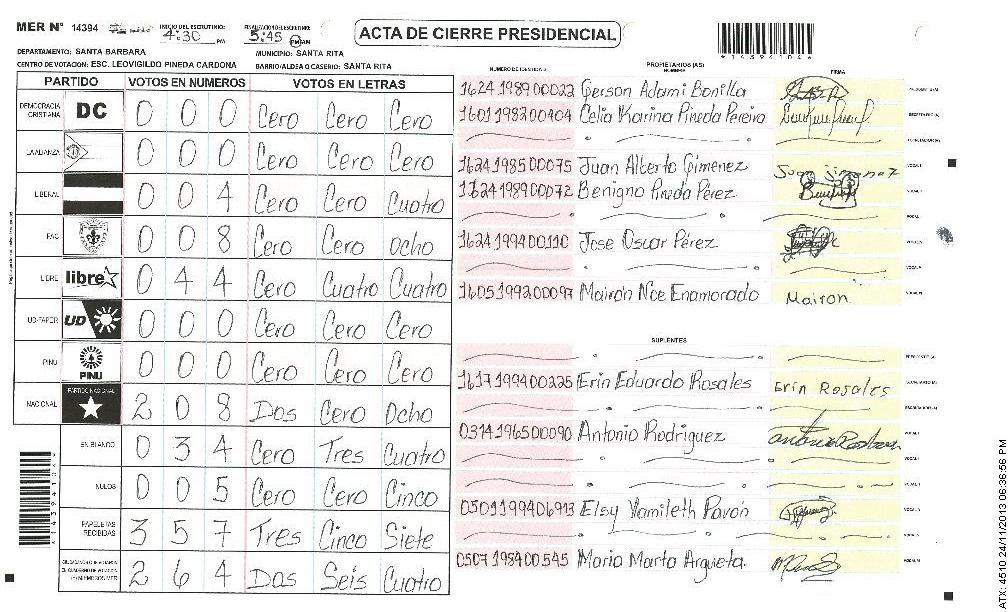 MER N° 14394
INICIO DEL ESCRUTINIO: 4:30 PM
FINALIZACION DEL ESCRUTINIO: 5:45
ACTA DE CIERRE PRESIDENCIAL
DEPARTAMENTO: SANTA BARBARA
MUNICIPIO: SANTA RITA
CENTRO DE VOTACION: ESC. LEOVIGILDO PINEDA CARDONA
BARRIO/ALDEA O CASERIO: SANTA RITA
PARTIDO VOTOS EN NUMEROS VOTOS EN LETRAS
DEMOCRACIA CRISTIANA DC 0 0 0 Cero Cero Cero
LA ALIANZA 0 0 0 Cero Cero Cero
LIBERAL 0 0 4 Cero Cero Cuatro
PAC 0 0 8 Cero Cero Ocho
LIBRE libre 0 4 4 Cero Cuatro Cuatro
UD-FAPER UD 0 0 0 Cero Cero Cero
PINU PINU 0 0 0 Cero Cero Cero
NACIONAL PARTIDO NACIONAL 2 0 8 Dos Cero Ocho
EN BLANCO 0 3 4 Cero Tres Cuatro
NULOS 0 0 5 Cero Cero Cinco
PAPELETAS RECIBIDAS 3 5 7 Tres Cinco Siete
2 6 4 Dos Seis Cuatro
PROPIETARIOS (AS)
NUMERO DE IDENTIDAD NOMBRE FIRMA
1624198900022 Gerson Adami Bonilla
1601198200404 Celia Karina Pineda Pereira
1624198500075 Juan Alberto Gimenez Juan Jimenez
1624198900072 Benigno Pineda Pérez
1624199400110 Jose Oscar Pérez
1605199200097 Mairon Noe Enamorado Mairon
SUPLENTES
1617199400225 Erin Eduardo Rosales Erin Rosales
0314196500090 Antonio Rodriguez
0501199406913 Elsy Yamileth Pavon
0507198400545 Maria Marta Argueta.
ATX: 4510 24/11/2013 06:36:56 PM